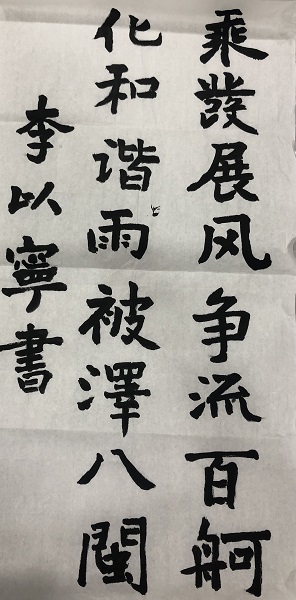 乘發展风争流百舸
化和谐雨被澤八閩
李以寧書